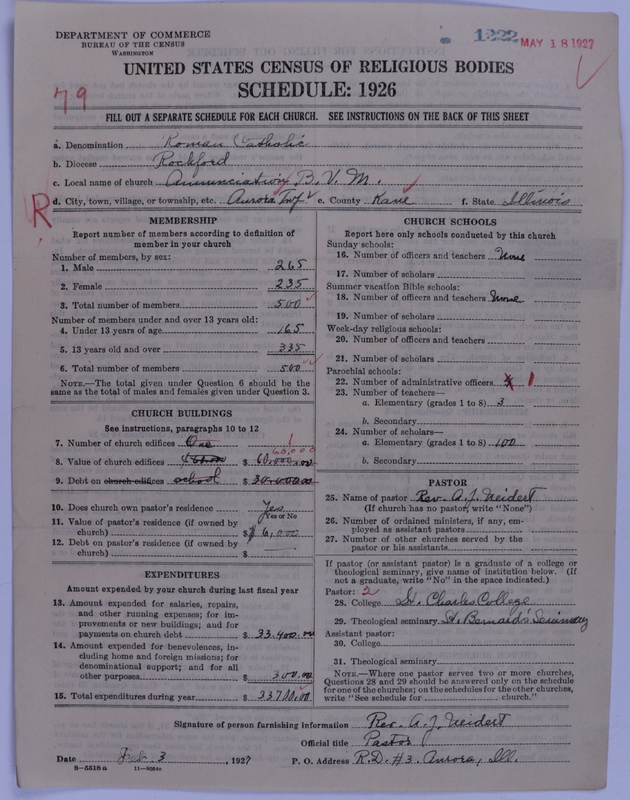 DEPARTMENT OF COMMERCE
BUREAU OF THE CENSUS
WASHINGTON
1222 MAY 18 1927
UNITED STATES CENSUS OF RELIGIOUS BODIES
SCHEDULE: 1926
79
FILL OUT A SEPARATE SCHEDULE FOR EACH CHURCH. SEE INSTRUCTIONS ON THE BACK OF THIS SHEET
a. Denomination Roman Catholic
b. Diocese Rockford
c. Local name of church Annunciation B. V. M.
R
d. City, town, village, or township, etc. Aurora Twp. e. County Kane f. State Illinois
MEMBERSHIP
Report number of members according to definition of member in your church
Number of members, by sex:
1. Male 265
2. Female 235
3. Total number of members 500
Number of members under and over 13 years old:
4. Under 13 years of age 165
5. 13 years old and over 335
6. Total number of members 500
NOTE.—The total given under Question 6 should be the
same as the total of males and females given under Question 3.
CHURCH BUILDINGS
See instructions, paragraphs 10 to 12
7. Number of church edifices One 1
60,000
8. Value of church edifices $ 60,000.00
9. Debt on church edifices school $ 30,000.00
10. Does church own pastor's residence Yes
Yes or No
11. Value of pastor's residence (if owned by
church) $ 6,000
12. Debt on pastor's residence (if owned by
church) $
EXPENDITURES
Amount expended by your church during last fiscal year
13. Amount expended for salaries, repairs,
and other running expenses; for im-
provements or new buildings; and for
payments on church debt $ 33,400.00
14. Amount expended for benevolences, in-
cluding home and foreign missions; for
denominational support; and for all
other purposes $ 300.00
15. Total expenditures during year $ 33700.00
CHURCH SCHOOLS
Report here only schools conducted by this church
Sunday schools:
16. Number of officers and teachers None
17. Number of scholars
Summer vacation Bible schools:
18. Number of officers and teachers None
19. Number of scholars
Week-day religious schools:
20. Number of officers and teachers
21. Number of scholars
Parochial schools:
22. Number of administrative officers 1
23. Number of teachers—
a. Elementary (grades 1 to 8) 3
b. Secondary
24. Number of scholars—
a. Elementary (grades 1 to 8) 100
b. Secondary
PASTOR
25. Name of pastor Rev. A. J. Neidert
(If church has no pastor, write "None")
26. Number of ordained ministers, if any, em-
ployed as assistant pastors
27. Number of other churches served by the
pastor or his assistants
If pastor (or assistant pastor) is a graduate of a college or
theological seminary, give name of institution below. (If
not a graduate, write "No" in the space indicated.)
Pastor: 2
28. College St. Charles College
29. Theological seminary St. Bernard's Seminary
Assistant pastor:
30. College
31. Theological seminary
NOTE.—Where one pastor serves two or more churches,
Questions 28 and 29 should be answered only on the schedule
for one of the churches; on the schedules for the other churches,
write "See schedule for church."
Signature of person furnishing information Rev. A. J. Neidert
Official title Pastor
Date Feb. 3, 1927 P. O. Address R.D. #3. Aurora, Ill.
8—5518 a